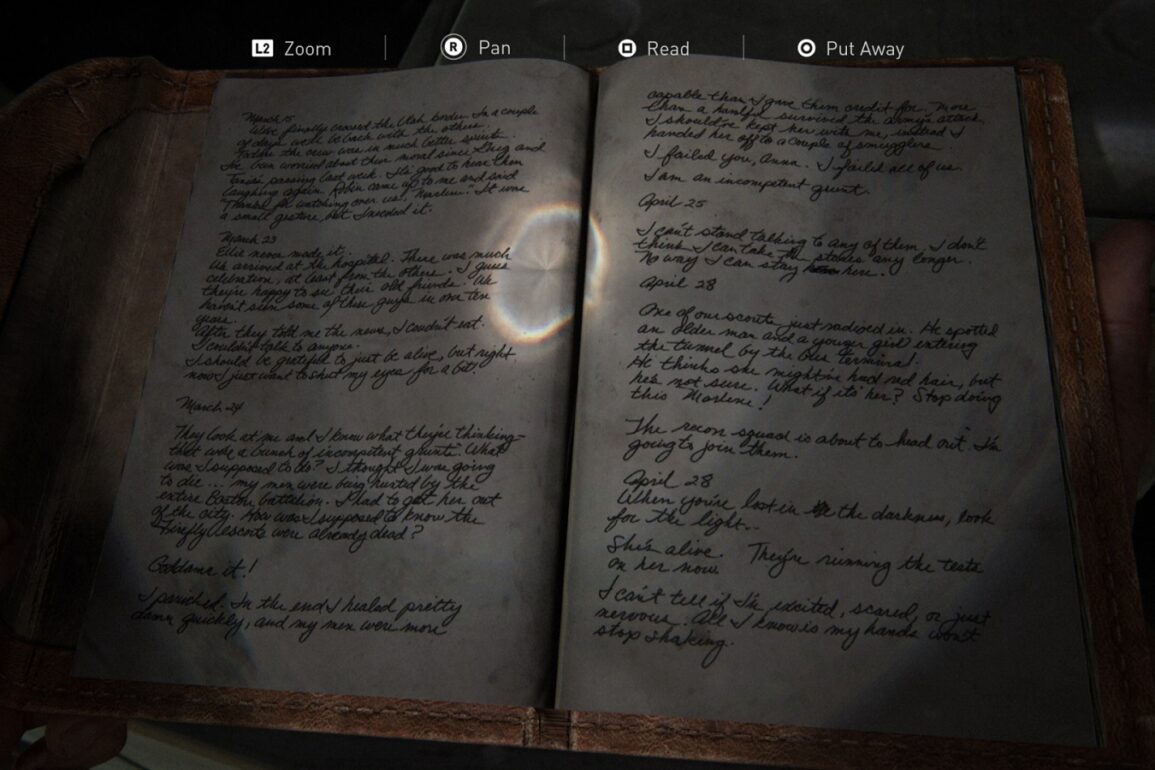 L2 Zoom | R Pan | Read | Put Away
March 15
We've finally crossed the Utah border. In a couple
of days we'll be back with the others.
the crew are in much better spirits.
I've been worried about their moral since and
passing last week. It's good to hear them
laughing again. Robin came up to me and said
"Thanks for watching over us, Marlene." It was
a small gesture, but I needed it.
March 23
Ellie never made it.
We arrived at the hospital. There was much
celebration, at least from the others. I guess
they're happy to see their old friends. We
haven't seen some of these guys in over ten
years.
After they told me the news, I couldn't eat.
I couldn't talk to anyone.
I should be grateful to just be alive, but right
now I just want to shut my eyes for a bit.
March 24
They look at me and I know what they're thinking-
that we're a bunch of incompetent grunts. What
was I supposed to do? I thought I was going
to die... my men were being hunted by the
entire Boston battalion. I had to get her out
of the city. How was I supposed to know the
Firefly escorts were already dead?
Goddamn it!
I panicked. In the end I healed pretty
damn quickly, and my men were more
capable than I gave them credit for. More
than a handful survived the army's attack.
I should've kept her with me, instead I
handed her off to a couple of smugglers.
I failed you, Anna. I failed all of us.
I am an incompetent grunt.
April 25
I can't stand talking to any of them. I don't
think I can take the stares any longer.
No way I can stay here.
April 28
One of our scouts just radioed in. He spotted
an older man and a younger girl entering
the tunnel by the bus terminal.
He thinks she might've had red hair, but
he's not sure. What if it's her? Stop doing
this Marlene!
The recon squad is about to head out. I'm
going to join them.
April 28
When you're lost in the darkness, look
for the light...
She's alive. They're running the tests
on her now.
I can't tell if I'm excited, scared, or just
nervous. All I know is my hands won't
stop shaking.